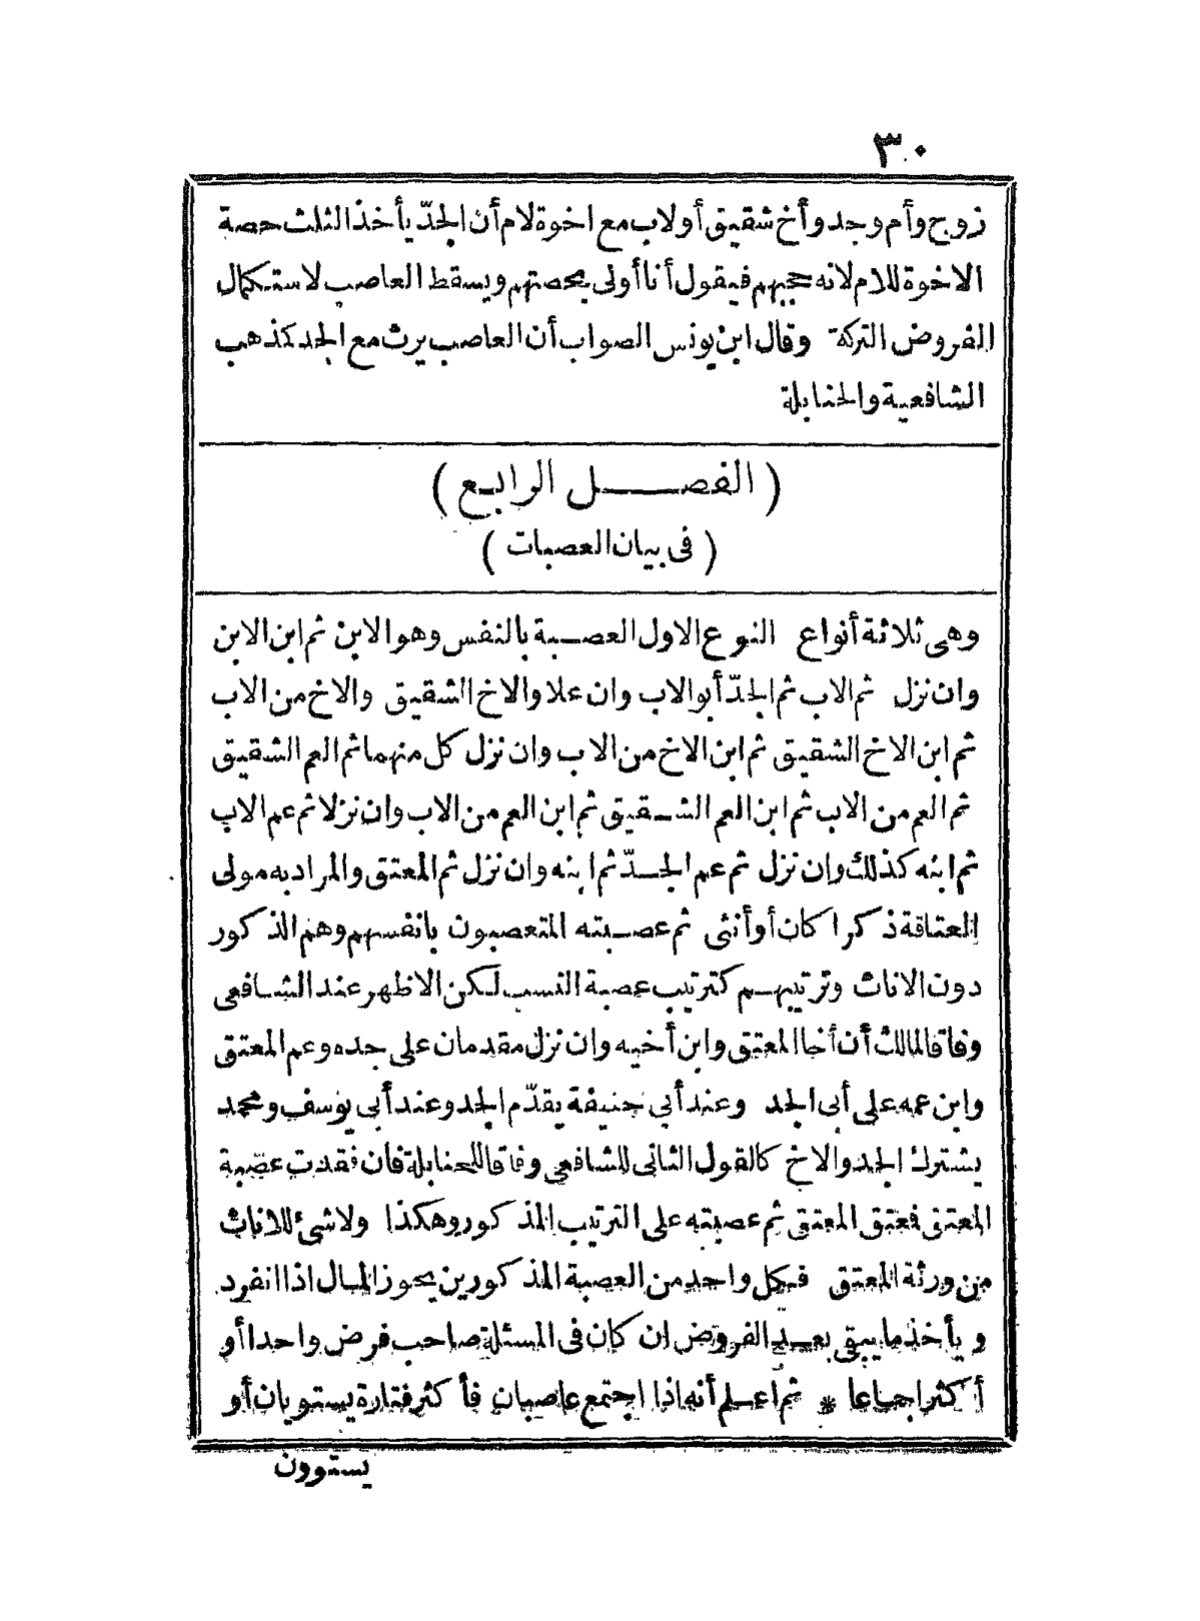 ٣٠
زوج وأم وجد وأخ شقيق أولاب مع اخوة لام أن الجدّ يأخذ الثلث حصة
الاخوة للام لانه حجبهم فيقول أنا أولى بحصتهم ويسقط العاصب لاستكمال
الفروض التركة وقال ابن يونس الصواب أن العاصب يرث مع الجد كذهب
الشافعية والحنابلة
(الفصل الرابع)
(فى بيان العصبات)
وهى ثلاثة أنواع النوع الاول العصبة بالنفس وهو الابن ثم ابن الابن
وان نزل ثم الاب ثم الجدّ أبو الاب وان علا والاخ الشقيق والاخ من الاب
ثم ابن الاخ الشقيق ثم ابن الاخ من الاب وان نزل كل منهما ثم العم الشقيق
ثم العم من الاب ثم ابن العم الشقيق ثم ابن العم من الاب وان نزلا ثم عم الاب
ثم ابنه كذلك وان نزل ثم عم الجدّ ثم ابنه وان نزل ثم المعتق والمراد به مولى
العتاقة ذكرا كان أو أنثى ثم عصبته المتعصبون بانفسهم وهم الذكور
دون الاناث وترتيبهم كترتيب عصبة النسب لكن الاظهر عند الشافعى
وفاقا لمالك أن أخا المعتق وابن أخيه وان نزل مقدمان على جده وعم المعتق
وابن عمه على أبى الجد وعند أبي حنيفة يقدّم الجد وعند أبي يوسف ومحمد
يشترك الجد والاخ كالقول الثانى للشافعى وفاقا للحنابلة فان فقدت عصبة
المعتق فمعتق المعتق ثم عصبته على الترتيب المذكور وهكذا ولا شئ للاناث
من ورثة المعتق فكل واحد من العصبة المذكورين يحوز المال اذا انفرد
ويأخذ ما يبقى بعد الفروض ان كان فى المسئلة صاحب فرض واحدا أو
أكثر اجماعا * ثم اعلم أنه اذا اجتمع عاصبان فأكثر فتارة يستويان أو
يستوون